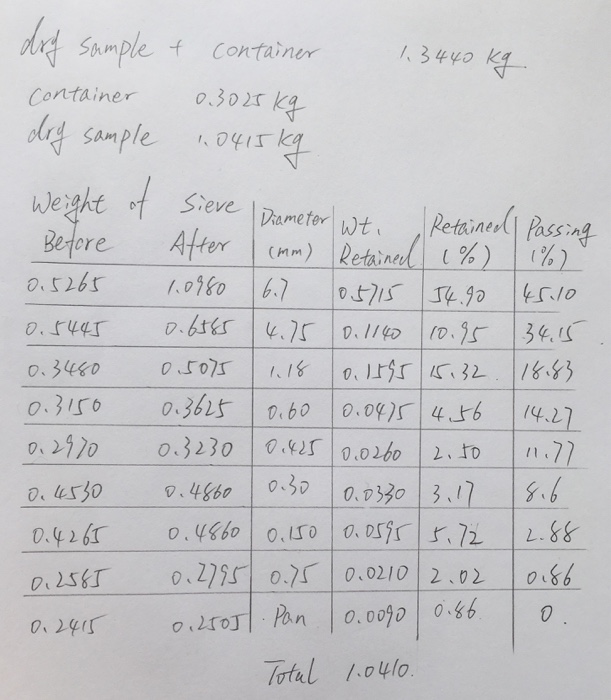 dry sample + container 1.3440 kg
container 0.3025 kg
dry sample 1.0415 kg
Weight of Sieve Diameter Wt. Retained Passing
Before After (mm) Retained (%) (%)
0.5265 1.0980 6.7 0.5715 54.90 45.10
0.5445 0.6585 4.75 0.1140 10.95 34.15
0.3480 0.5075 1.18 0.1595 15.32 18.83
0.3150 0.3625 0.60 0.0475 4.56 14.27
0.2970 0.3230 0.425 0.0260 2.50 11.77
0.4530 0.4860 0.30 0.0330 3.17 8.6
0.4265 0.4860 0.150 0.0595 5.72 2.88
0.2585 0.2795 0.75 0.0210 2.02 0.86
0.2415 0.2505 Pan 0.0090 0.86 0.
Total 1.0410.